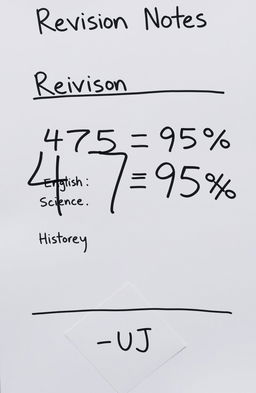 Revision Notes
Reivison
475 = 95%
47=95%
English:
Science.
Historey
-UJ